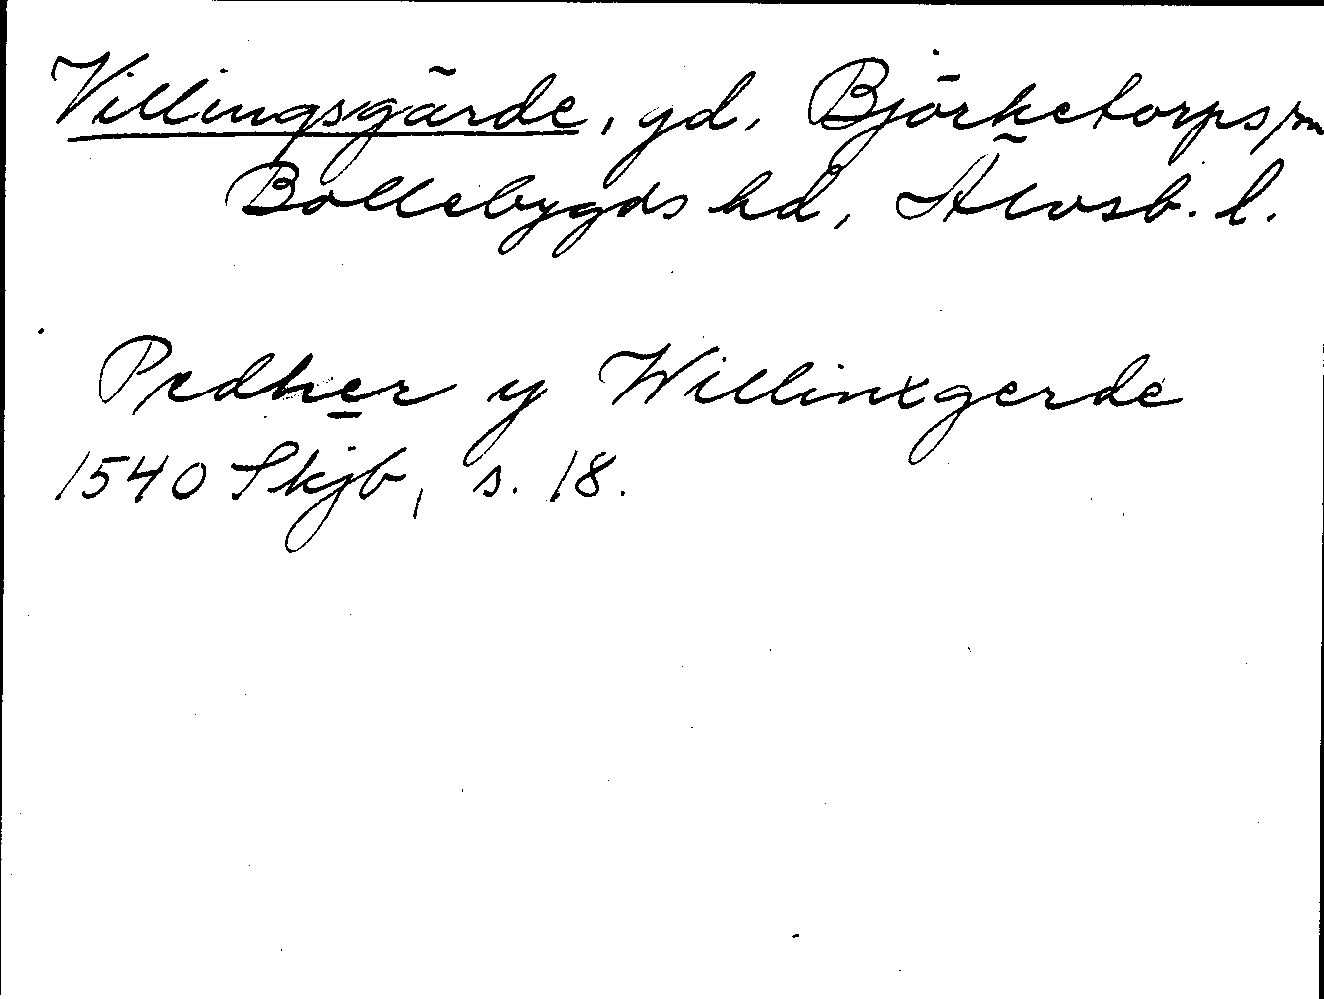 Villingsgärde, gd, Björketorps sn
Bollebygds hd, Älvsb. l.
Pedher y Willinxgerde
1540 Skjb, s. 18.